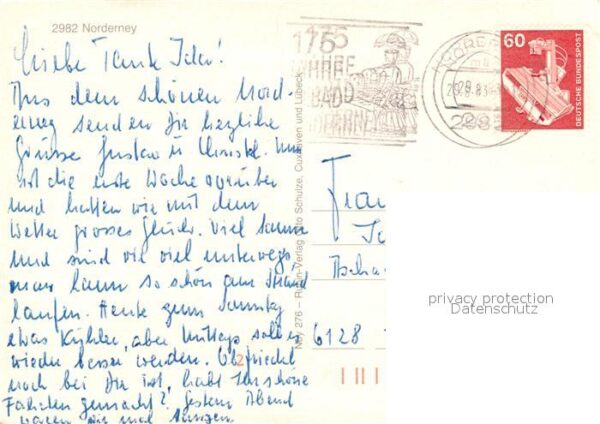 2982 Norderney
Liebe Tante Ida!
Aus dem schönen Nord-
erney senden Dir herzliche
Grüsse Gustav u. Christel. Nun
ist die erste Woche vorüber
und hatten wir mit dem
Wetter grosses Glück. Viel Sonne
und sind viel viel unterwegs,
man kann so schön am Strand
laufen. Heute zum Sonntag
etwas kühler, aber mittags soll es
wieder besser werden. Ob Friedel
noch bei Dir ist, habt Ihr schöne
Fahrten gemacht? Gestern Abend
waren wir mal tanzen.
Ney 276 – Rhein-Verlag Otto Schulze, Cuxhaven und Lübeck
175
JAHRE
BAD
NORDERNEY
NORDE
29.8.83
2982
60
DEUTSCHE BUNDESPOST
Frau
Ascha
6128
privacy protection
Datenschutz